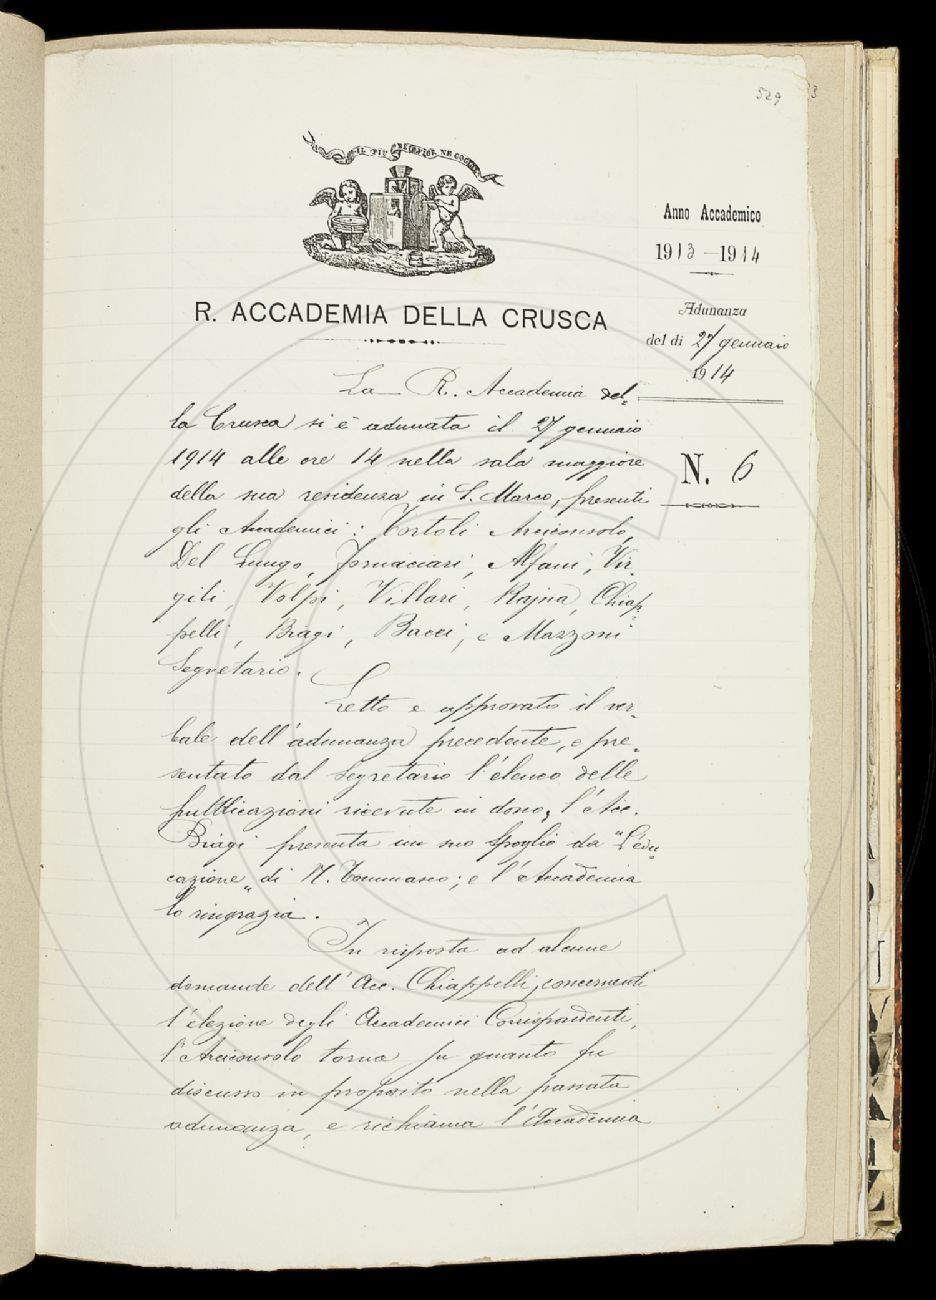 529
IL PIÙ BEL FIOR NE COGLIE
Anno Accademico
1913-1914
R. ACCADEMIA DELLA CRUSCA
Adunanza
del dì 27 gennaio
1914
N. 6
La R. Accademia del-
la Crusca si è adunata il 27 gennaio
1914 alle ore 14 nella sala maggiore
della sua residenza in S. Marco, presenti
gli Accademici: Tortoli Arciconsolo,
Del Lungo, Fornaciari, Alfani, Vir-
gili, Volpi, Villari, Rajna, Chiap-
pelli, Biagi, Bacci, e Mazzoni
Segretario.
Letto e approvato il ver-
bale dell'adunanza precedente, e pre-
sentato dal Segretario l'elenco delle
pubblicazioni ricevute in dono, l'Acc.
Biagi presenta un suo spoglio da "L'edu-
cazione" di N. Tommaseo; e l'Accademia
lo ringrazia.
In risposta ad alcune
domande dell'Acc. Chiappelli, concernenti
l'elezione degli Accademici Corrispondenti,
l'Arciconsolo torna su quanto fu
discusso in proposito nella passata
adunanza, e richiama l'Accademia